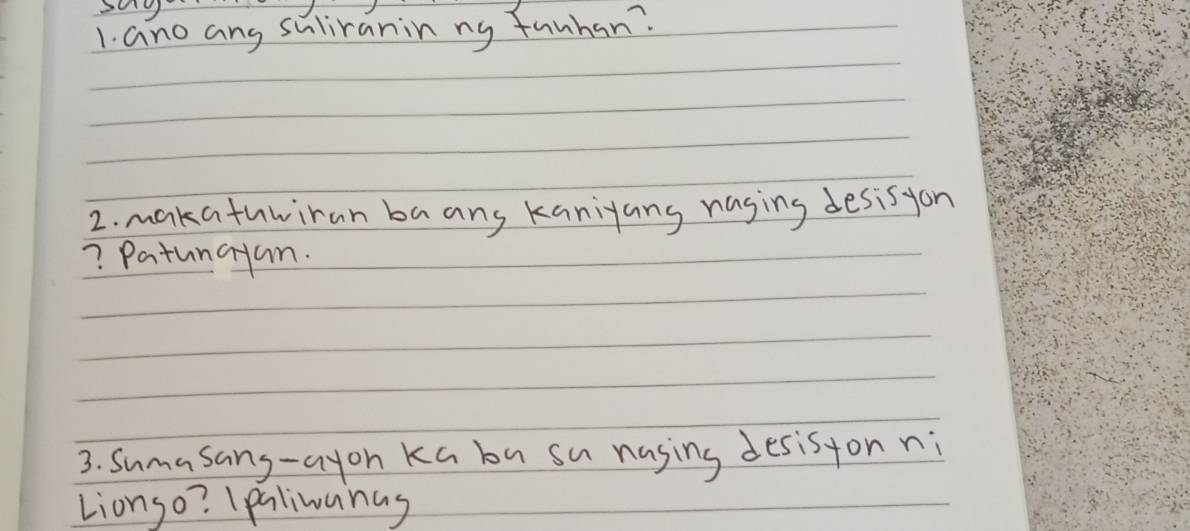 1. ano ang suliranin ng tauhan?
2. makatuwiran ba ang kaniyang naging desisyon
? Patunayan.
3. Sumasang-ayon ka ba sa naging desisyon ni
Liongo? Ipaliwanag